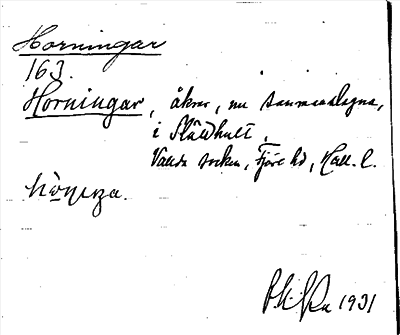 Horningar
163.
Horningar, åkrar, nu sammanslagna,
i Slädhult,
Vallda socken, Fjäre hd, Hall. l.
1931